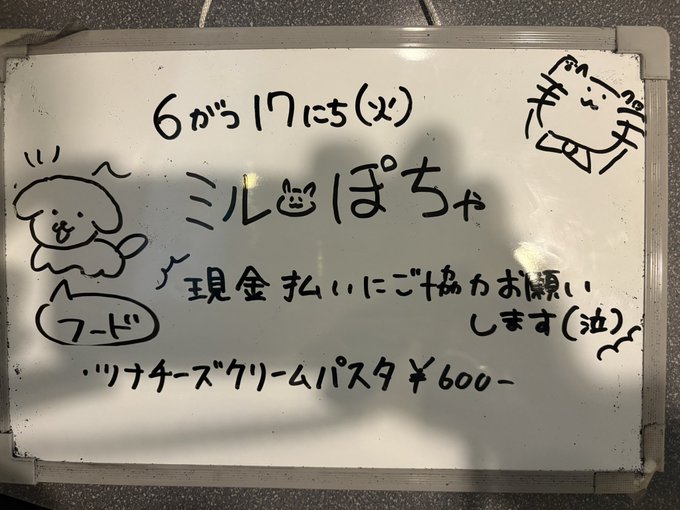 6がつ17にち(火)
ミル ぽちゃ
現金払いにご協力お願い
します(泣)
フード
・ツナチーズクリームパスタ ¥600-